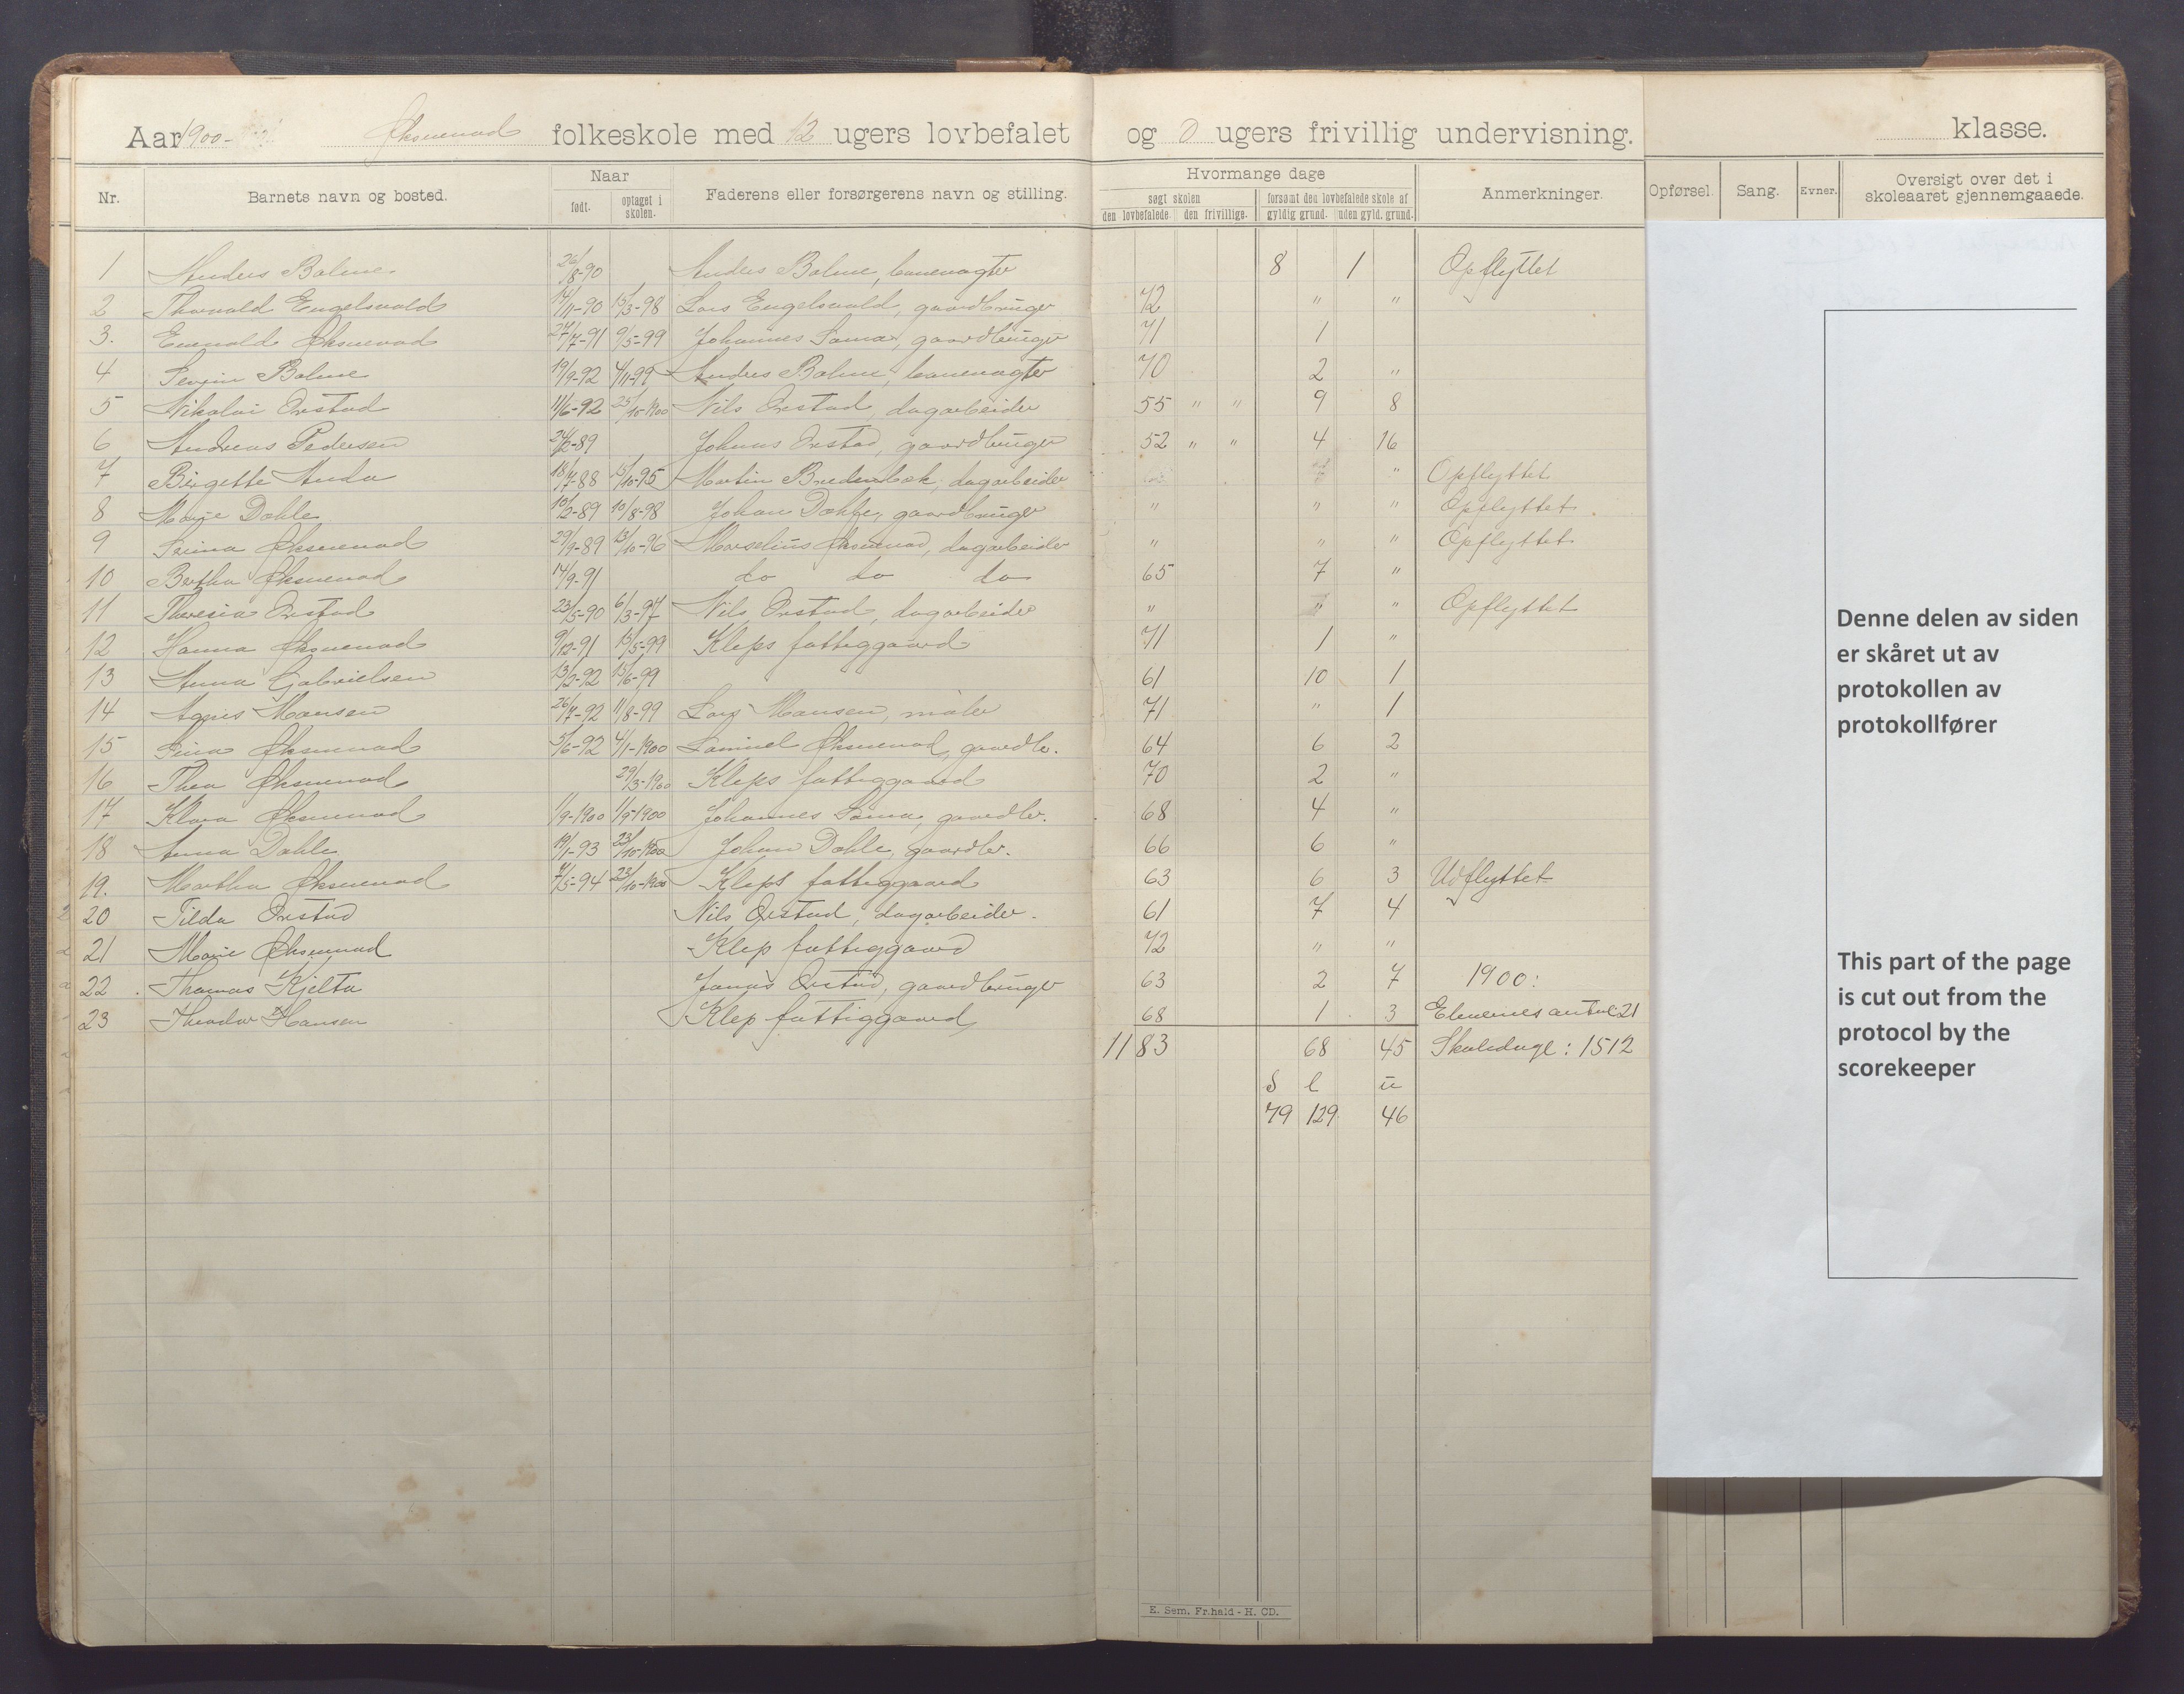 Aar 1900- Øksnevad folkeskole med 12 ugers lovbefalet og 0 ugers frivillig undervisning. klasse.
Nr. Barnets navn og bosted. Naar født. optaget i skolen. Faderens eller forsørgerens navn og stilling. Hvormange dage søgt skolen den lovbefalede. den frivillige. forsømt den lovbefalede skole af gyldig grund. uden gyld. grund. Anmerkninger. Opførsel. Sang. Evner. Oversigt over det i skoleaaret gjennemgaaede.
1 Anders Bolme. 26/8-90 Anders Bolme, banevagter 8 1 Opflyttet
2 Thorvald Engelsvold 14/11-90 15/3-98 Lars Engelsvold, gaardbruger 72 " "
3. Enevald Øksnevad 27/7-91 9/5-99 Johannes Sama, gaardbruger 71 1
4 Bolme 19/9-92 4/11-99 Anders Bolme, banevagter 70 2 "
5 Nikolai Orstad 11/6-92 25/10-1900 Nils Orstad, dagarbeider 55 " " 9 8
6 Andreas Pedersen 24/2-89 Orstad, gaardbruger 52 " " 4 16
7 Birgette Anda 18/7-88 15/10-95 Martin Bredenbek, dagarbeider " Opflyttet
8 Marie Dahle 10/2-89 10/8-98 Johan Dahle, gaardbruger " " " Opflyttet.
9 Serina Øksnevad 29/9-89 13/10-96 Marselius Øksnevad, dagarbeider " " " Opflyttet
10 Bertha Øksnevad 14/9-91 do do do 65 7 "
11 Theresia Orstad 23/5-90 6/3-97 Nils Orstad, dagarbeider " " " Opflyttet
12 Hanna Øksnevad 9/12-91 15/5-99 Kleps fattiggaard 71 1 "
13 Anna Gabrielsen 13/2-92 15/6-99 61 10 1
14 Agnes Hansen 26/7-92 11/8-99 Lars Hansen, maler 71 " 1
15 Øksnevad 5/6-92 4/1-1900 Samuel Øksnevad, gaardbr. 64 6 2
16 Thea Øksnevad 29/3-1900 Kleps fattiggaard 70 2 "
17 Klara Øksnevad 1/9-1900 1/9-1900 Johannes Sama, gaardbr. 68 4 "
18 Anna Dahle 19/1-93 23/10-1900 Johan Dahle, gaardbr. 66 6 "
19. Martha Øksnevad 7/5-94 23/10-1900 Kleps fattiggaard 63 6 3 Udflyttet
20 Tilda Orstad Nils Orstad, dagarbeider. 61 7 4
21 Marie Øksnevad Klep fattiggaard 72 " "
22 Thomas Kjelta Jonas Orstad, gaardbruger 63 2 7 1900:
23 Theodor Hansen Klep fattiggaard, 68 1 3 Elevernes antal 21
1183 68 45 Skoledage: 1512
S l u
79 129 46
E. Sem, Fr.hald - H. CD.
Denne delen av siden
er skåret ut av
protokollen av
protokollfører
This part of the page
is cut out from the
protocol by the
scorekeeper